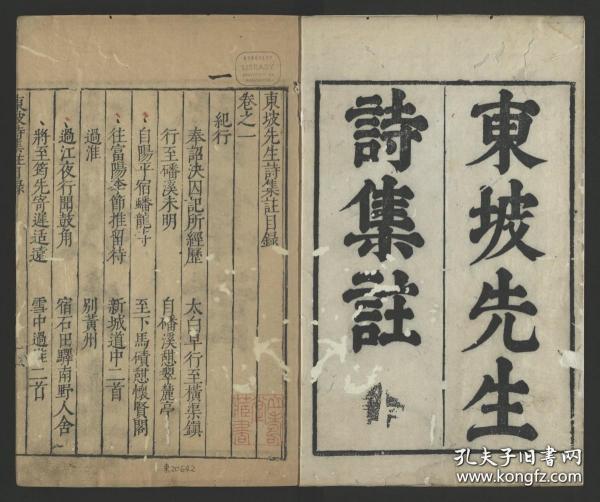 東坡先生
詩集註
東坡先生詩集註目録
卷之一
紀行
奉詔決囚記所經歷
太白早行至橫渠鎮
行至磻溪未明
自磻溪憇翠麓亭
自陽平宿蟠龍寺
至下馬磧憇懷賢閣
往富陽李節推留待
新城道中二首
過淮
別黃州
過江夜行聞鼓角
宿石田驛南野人舍
將至筠先寄遲适遠
雪中過淮二首
東坡詩集註目錄
一
LIBRARY
東20642
孔夫子旧书网
www.kongfz.com